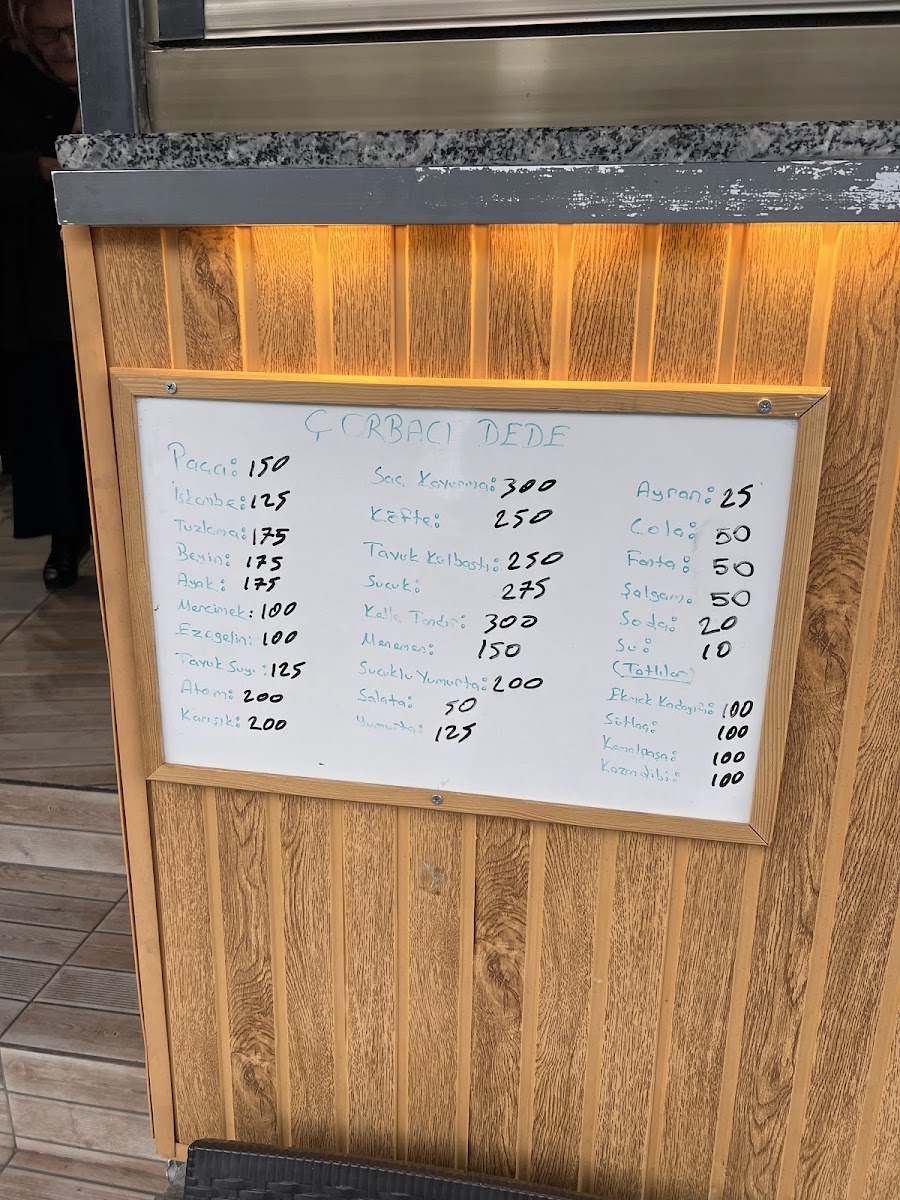 ÇORBACI DEDE
Paça: 150
İşkembe: 125
Tuzlama: 175
Beyin: 175
Ayak: 175
Mercimek: 100
Ezogelin: 100
Tavuk Suyu: 125
Atom: 200
Karışık: 200
Saç Kavurma: 300
Köfte: 250
Tavuk Kalbastı: 250
Sucuk: 275
Kelle Tandır: 300
Menemen: 150
Sucuklu Yumurta: 200
Salata: 50
Yumurta: 125
Ayran: 25
Cola: 50
Fanta: 50
Şalgam: 50
Soda: 20
Su: 10
(Tatlılar)
Ekmek Kadayıfı: 100
Sütlaç: 100
Kemalpaşa: 100
Kazandibi: 100